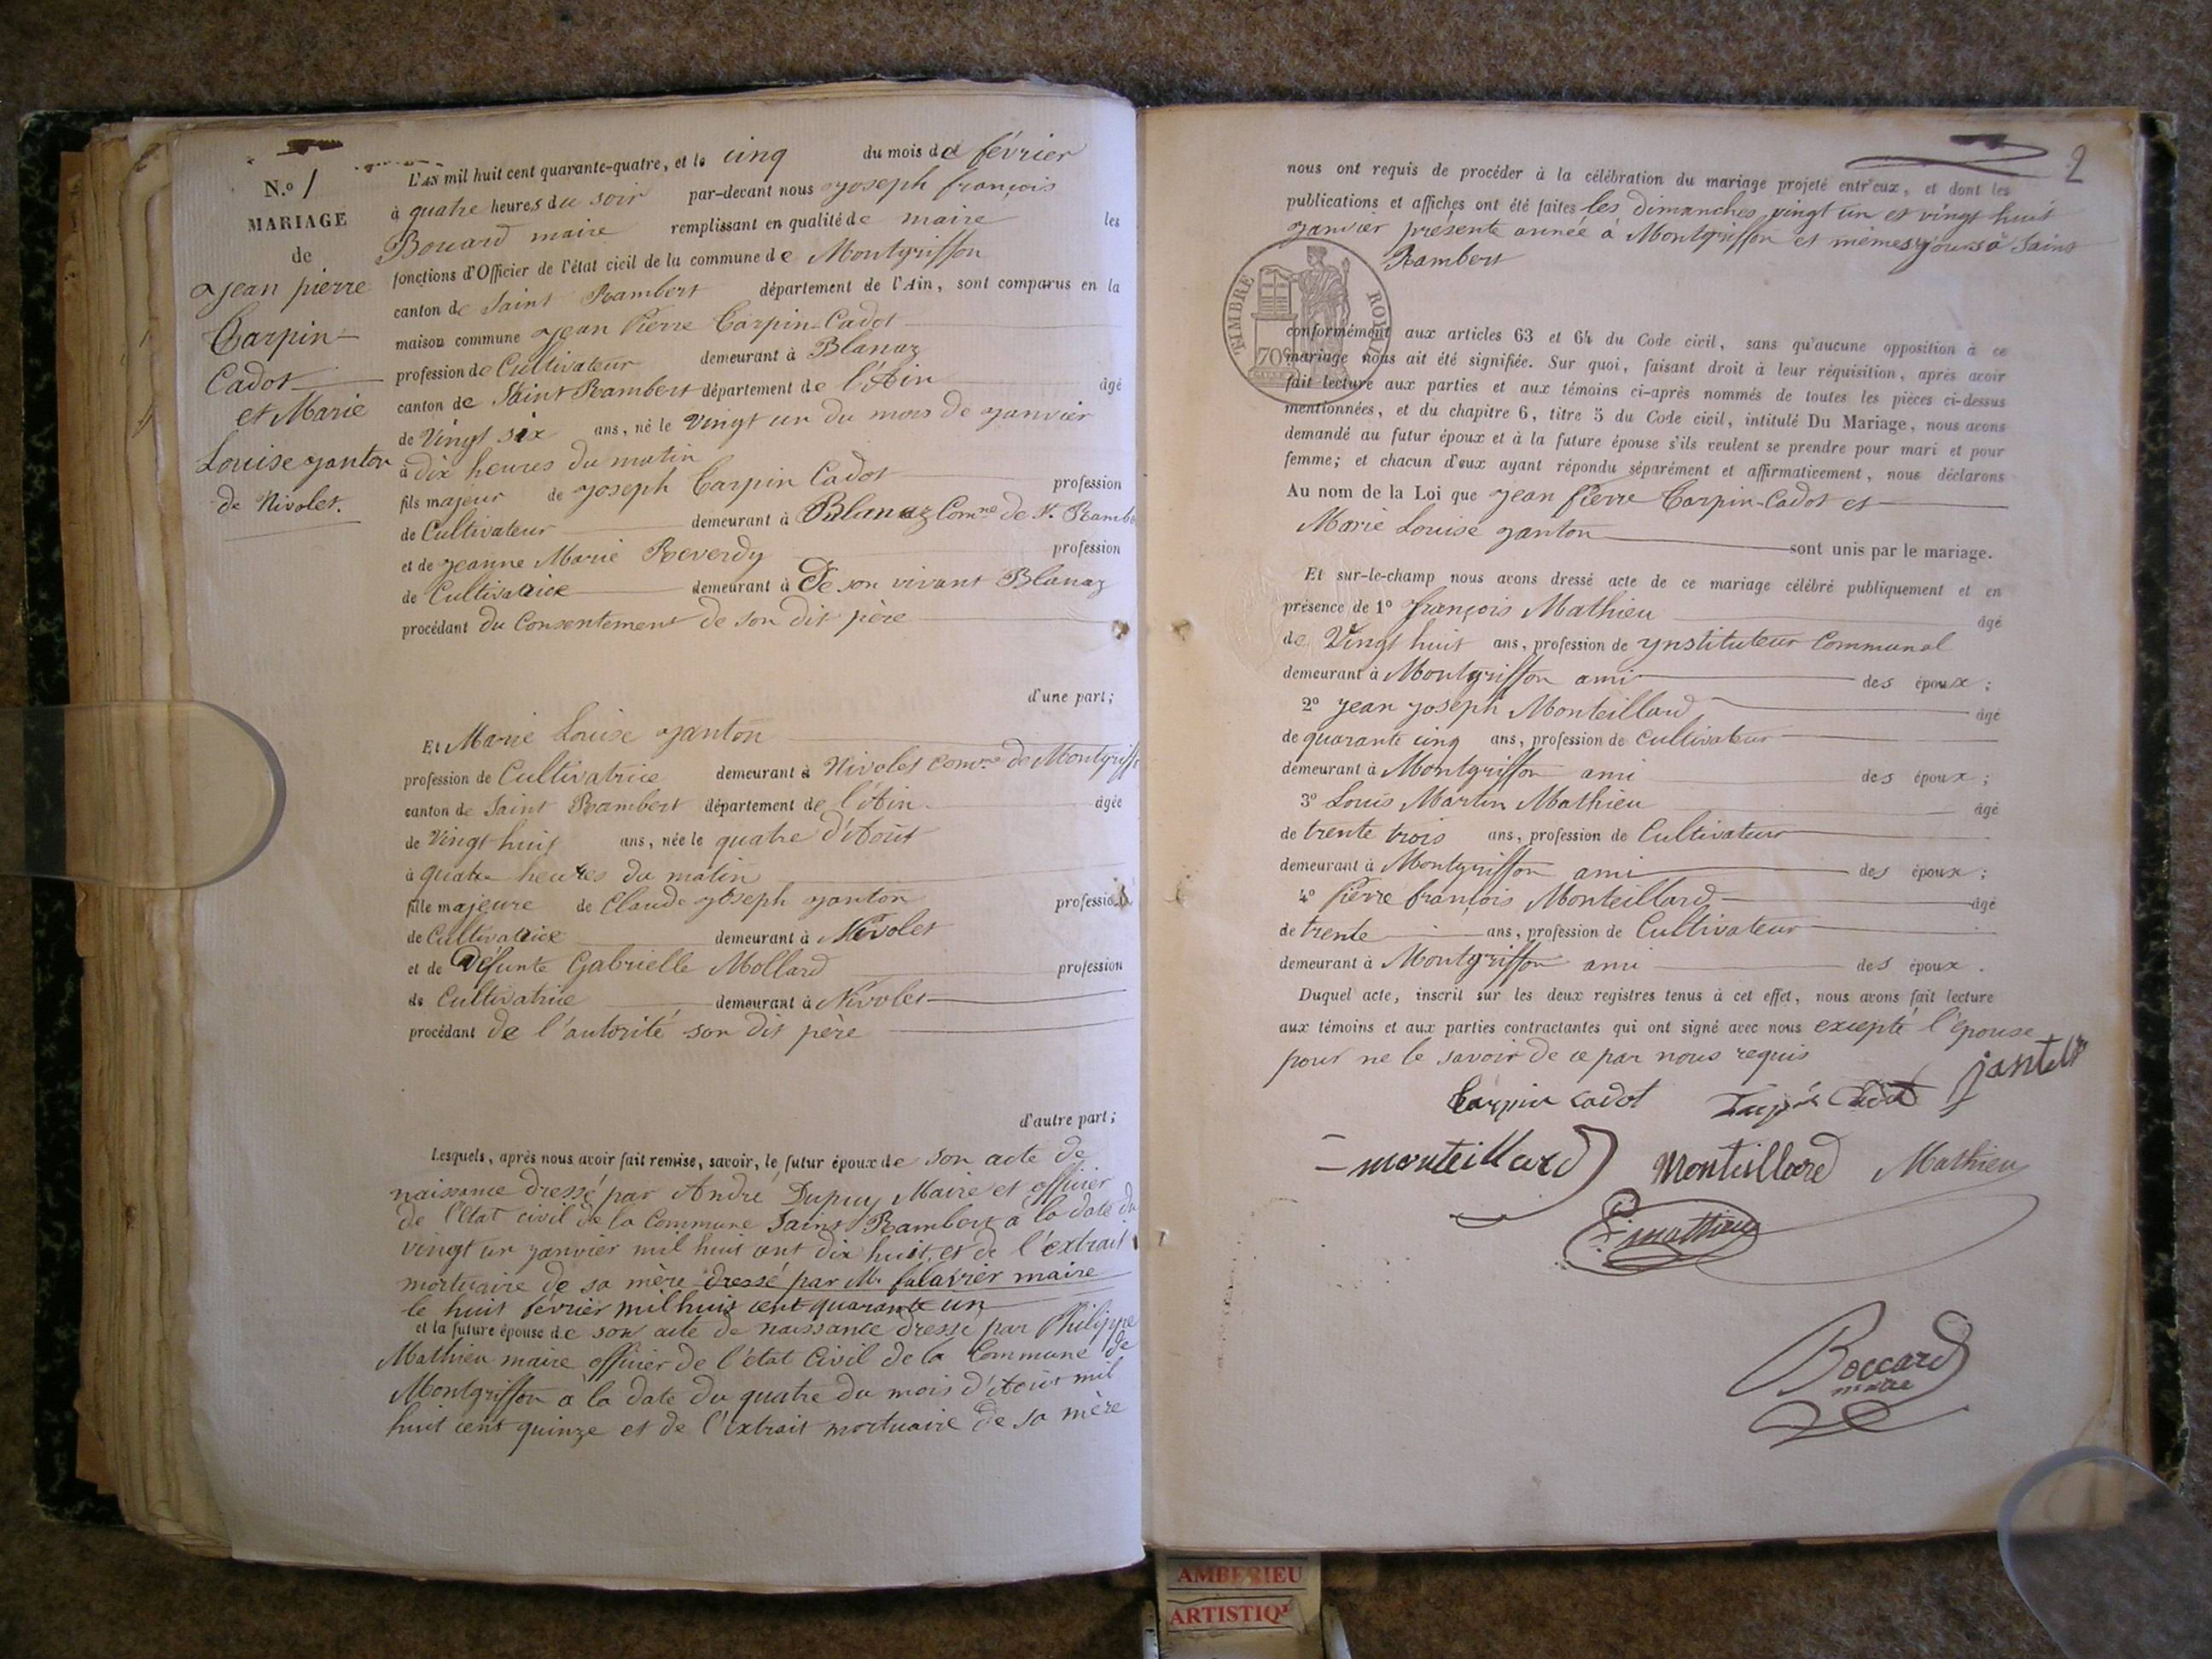 N.o 1
MARIAGE
de
Jean pierre
Carpin-
Cadot
et Marie
Louise Janton
de Nivolet.
L'AN mil huit cent quarante-quatre, et le cinq du mois de février
à quatre heures du soir par-devant nous Joseph françois
maire remplissant en qualité de maire les
fonctions d'Officier de l'état civil de la commune de Montgriffon
canton de Saint Rambert département de l'Ain, sont comparus en la
maison commune Jean Pierre Carpin-Cadot
profession de Cultivateur demeurant à Blanaz
canton de Saint Rambert département de l'Ain âgé
de Vingt six ans, né le Vingt un du mois de Janvier
à dix heures du matin
fils majeur de Joseph Carpin Cadot profession
de Cultivateur demeurant à Blanaz Comne de St. Rambe
et de Jeanne Marie Reverdy profession
de Cultivatrice demeurant à De son vivant Blanaz
procédant du Consentement de son dit père
d'une part;
Et Marie Louise Janton
profession de Cultivatrice demeurant à Nivolet comne de Montgriff
canton de Saint Rambert département de l'Ain âgée
de Vingt huit ans, née le quatre d'Août
à quatre heures du matin
fille majeure de Claude Joseph Janton profession
de demeurant à Nivolet
et de Défunte Gabrielle Mollard profession
de Cultivatrice demeurant à Nivolet
procédant de l'autorité son dit père
d'autre part;
Lesquels, après nous avoir fait remise, savoir, le futur époux de son acte de
naissance dressé par André Dupuy Maire et officier
de l'Etat civil de la Commune Saint Rambert à la date du
vingt un Janvier mil huit cent dix huit et de l'extrait
mortuaire de sa mère dressé par M. maire
le huit février mil huit cent quarante un
et la future épouse de son acte de naissance dressé par Philippe
Mathieu maire officier de l'état Civil de la Commune de
Montgriffon à la date du quatre du mois d'Août mil
huit cent quinze et de l'extrait mortuaire de sa mère
2
nous ont requis de procéder à la célébration du mariage projeté entr'eux, et dont les
publications et affiches ont été faites les Dimanches vingt un et vingt huit
Janvier présente année à Montgriffon et mêmes jours à Saint
Rambert
TIMBRE ROYAL
70c
conformément aux articles 63 et 64 du Code civil, sans qu'aucune opposition à ce
mariage nous ait été signifiée. Sur quoi, faisant droit à leur réquisition, après avoir
fait lecture aux parties et aux témoins ci-après nommés de toutes les pièces ci-dessus
mentionnées, et du chapitre 6, titre 5 du Code civil, intitulé Du Mariage, nous avons
demandé au futur époux et à la future épouse s'ils veulent se prendre pour mari et pour
femme; et chacun d'eux ayant répondu séparément et affirmativement, nous déclarons
Au nom de la Loi que Jean Pierre Carpin-Cadot et
Marie Louise Janton sont unis par le mariage.
Et sur-le-champ nous avons dressé acte de ce mariage célébré publiquement et en
présence de 1o françois Mathieu âgé
de Vingt huit ans, profession de ynstituteur Communal
demeurant à Montgriffon ami des époux;
2o Jean Joseph Monteillard âgé
de quarante cinq ans, profession de Cultivateur
demeurant à Montgriffon ami des époux;
3o Louis Martin Mathieu âgé
de trente trois ans, profession de Cultivateur
demeurant à Montgriffon ami des époux;
4o Pierre françois Monteillard âgé
de trente ans, profession de Cultivateur
demeurant à Montgriffon ami des époux.
Duquel acte, inscrit sur les deux registres tenus à cet effet, nous avons fait lecture
aux témoins et aux parties contractantes qui ont signé avec nous excepté l'épouse
pour ne le savoir de ce par nous requis
Carpin Cadot
monteillard Monteillard Mathieu
F. mathieu
Boccard
maire
AMBERIEU
ARTISTIQ